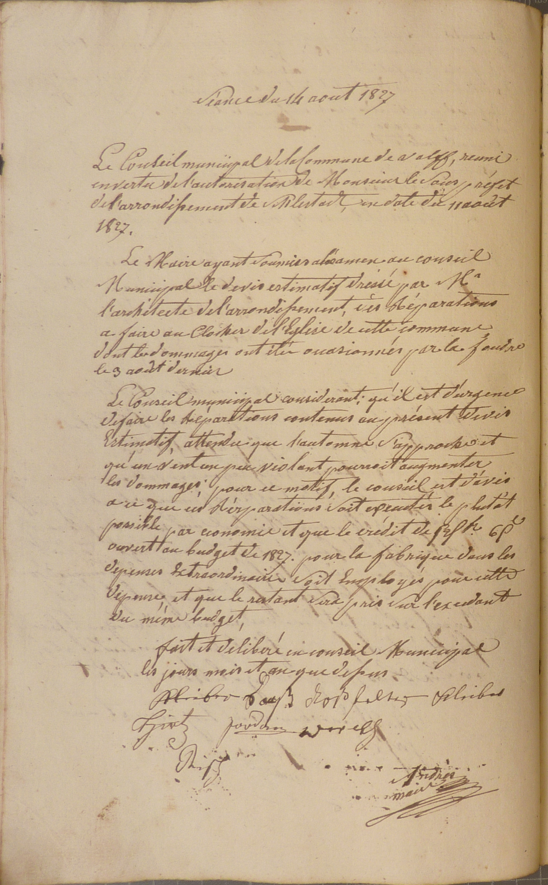 Séance du 14 aout 1827
Le Conseil municipal de la Commune de Valff, reuni
en vertu de l'autorisation de Monsieur le Sous préfet
de l'arrondissement de Sélestadt, en date du 11 aout
1827.
Le Maire ayant soumis a l'examen au conseil
Municipal le devis estimatif dréssé par Mr
l'architecte de l'arrondissement, des Réparations
a faire au Clocher de l'Eglise de cette commune
dont les dommages ont été occasionnés par la foudre
le 3 août dernier
Le Conseil municipal considerant; qu'il est d'urgence
de faire les Réparations contenus au présent Devis
Estimatif, attendu que l'automne s'approche et
qu'un vent un peu violant pourroit augmenter
les dommages; pour ce motif, le conseil est d'avis
a ce que ces Réparations soit executés le plutôt
possible par economie et que le crédit de
ouvert au budget de 1827. pour la fabrique dans les
depenses Extraordinaire soit Employés pour cette
depense, et que le restant sera pris sur l'excedant
du même budget
fait et deliberé en conseil Municipal
les jours mois et an que dessus
Jordan
André
maire